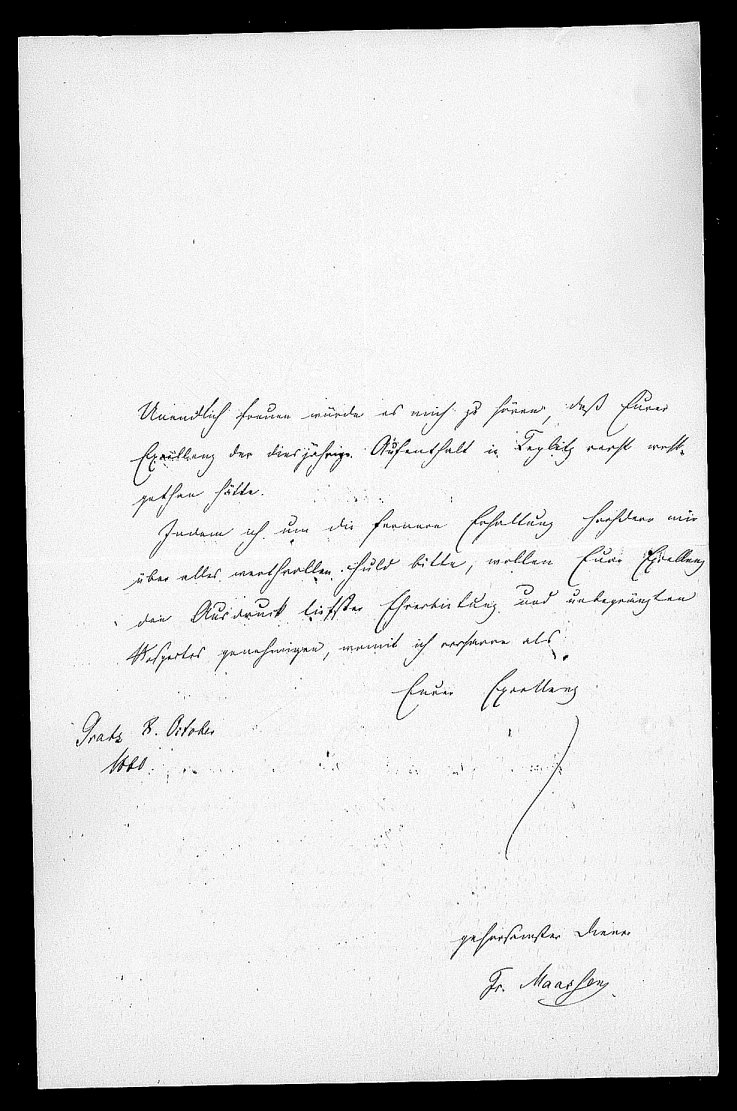 Unendlich freuen würde es mich zu hören, daß Eurer
Excellenz der diesjährige Aufenthalt in Teplitz recht wohl-
gethan hätte.
Indem ich um die fernere Erhaltung Hochderer mir
über alles werthvollen Huld bitte, wollen Eure Excellenz
den Ausdruck tiefster Ehrerbietung und unbegränzten
Respectes genehmigen, womit ich verharre als
Eurer Excellenz
Gratz 8. October
1860
gehorsamster Diener
Fr. Maassen